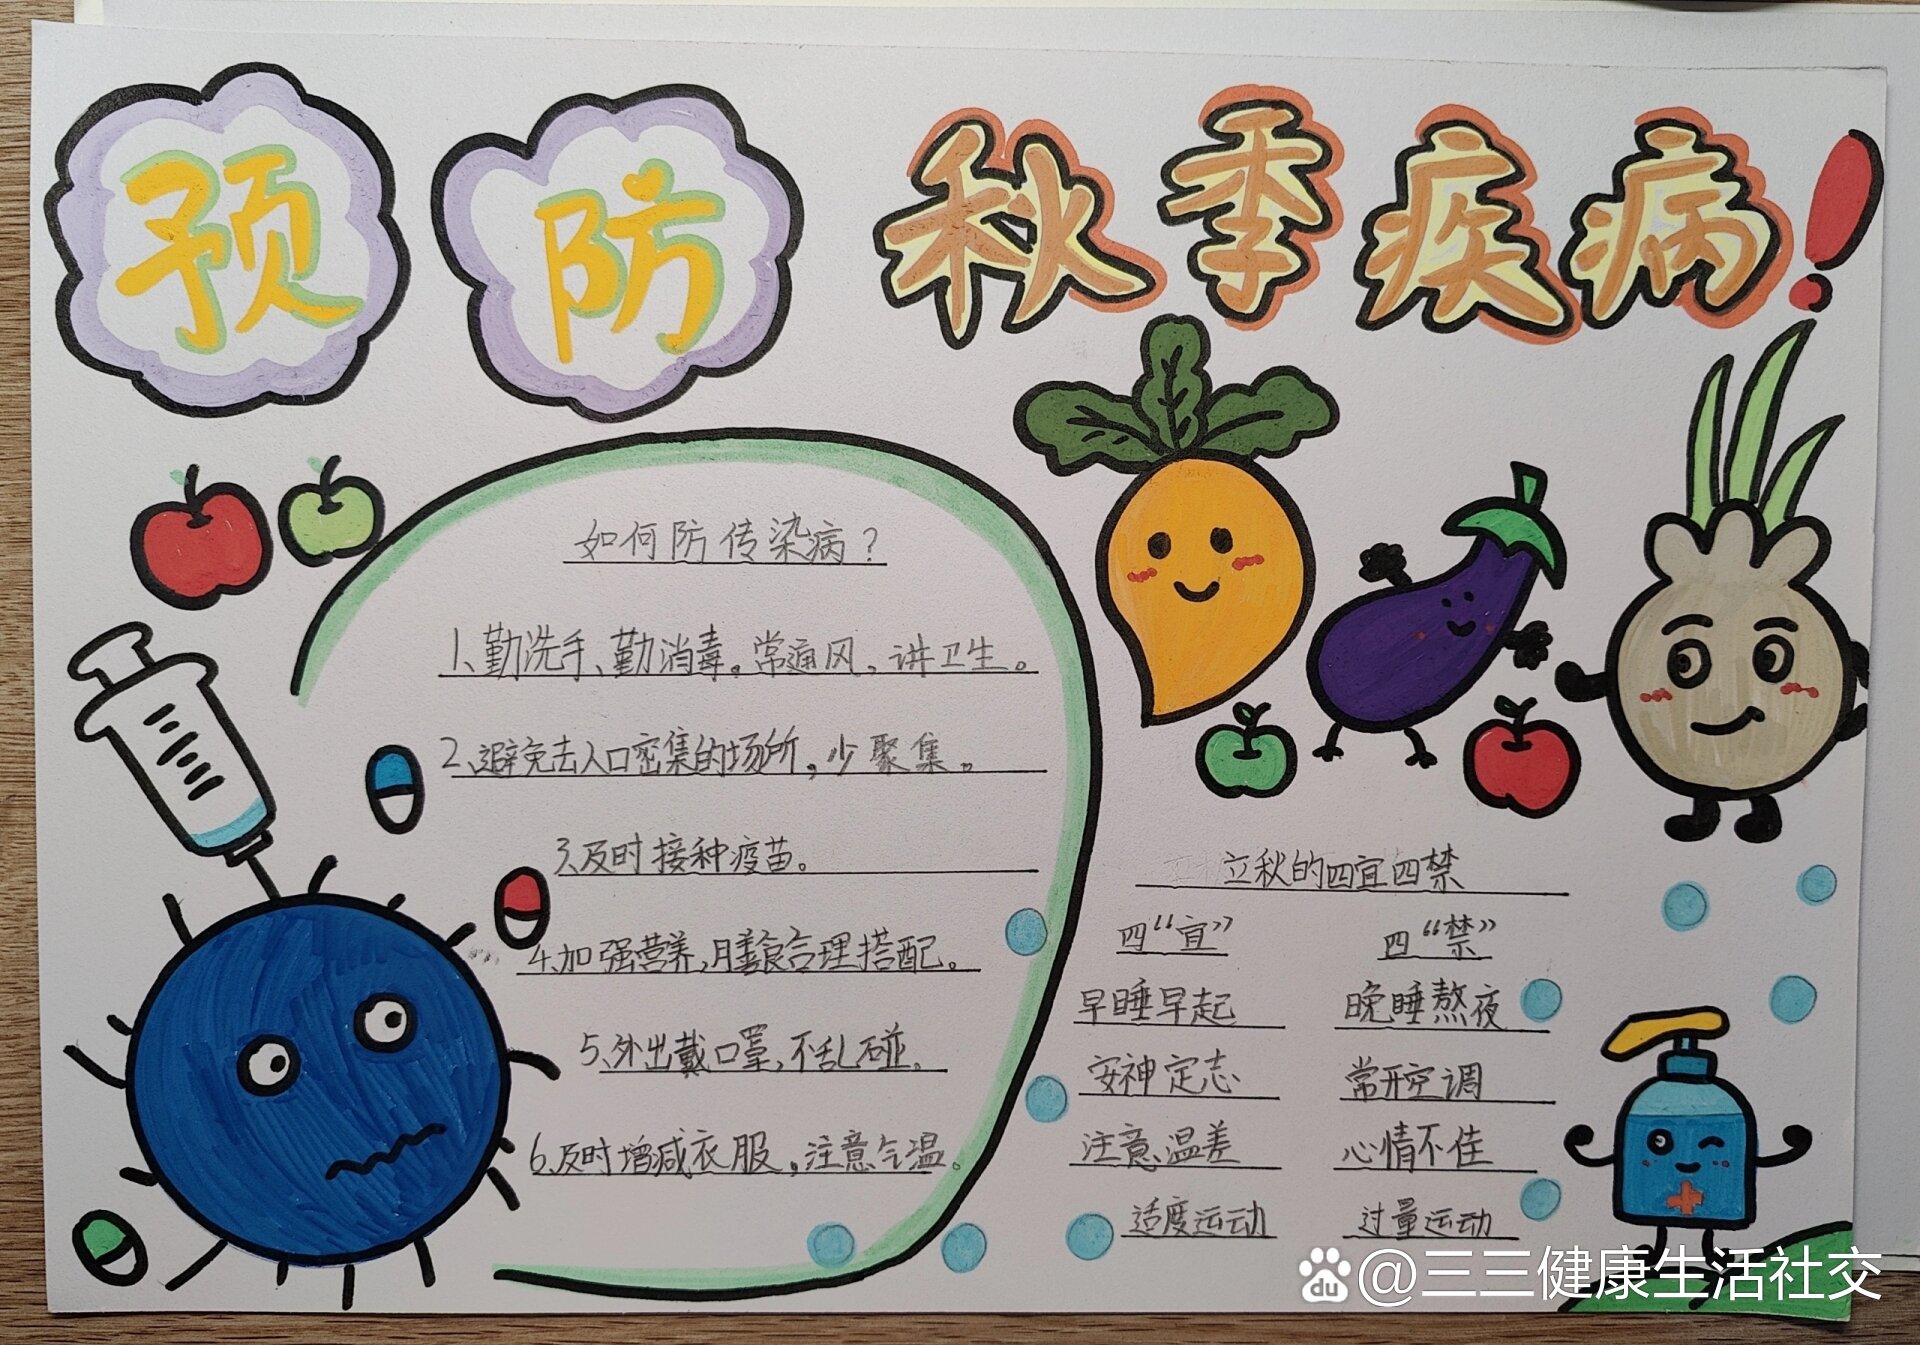 预防秋季疾病！
如何防传染病？
1、勤洗手、勤消毒。常通风，讲卫生。
2、避免去人口密集的场所，少聚集。
3、及时接种疫苗。
4、加强营养，膳食合理搭配。
5、外出戴口罩，不乱碰。
6、及时增减衣服，注意气温。
立秋的四宜四禁
四“宜” 四“禁”
早睡早起 晚睡熬夜
安神定志 常开空调
注意温差 心情不佳
适度运动 过量运动
du @三三健康生活社交